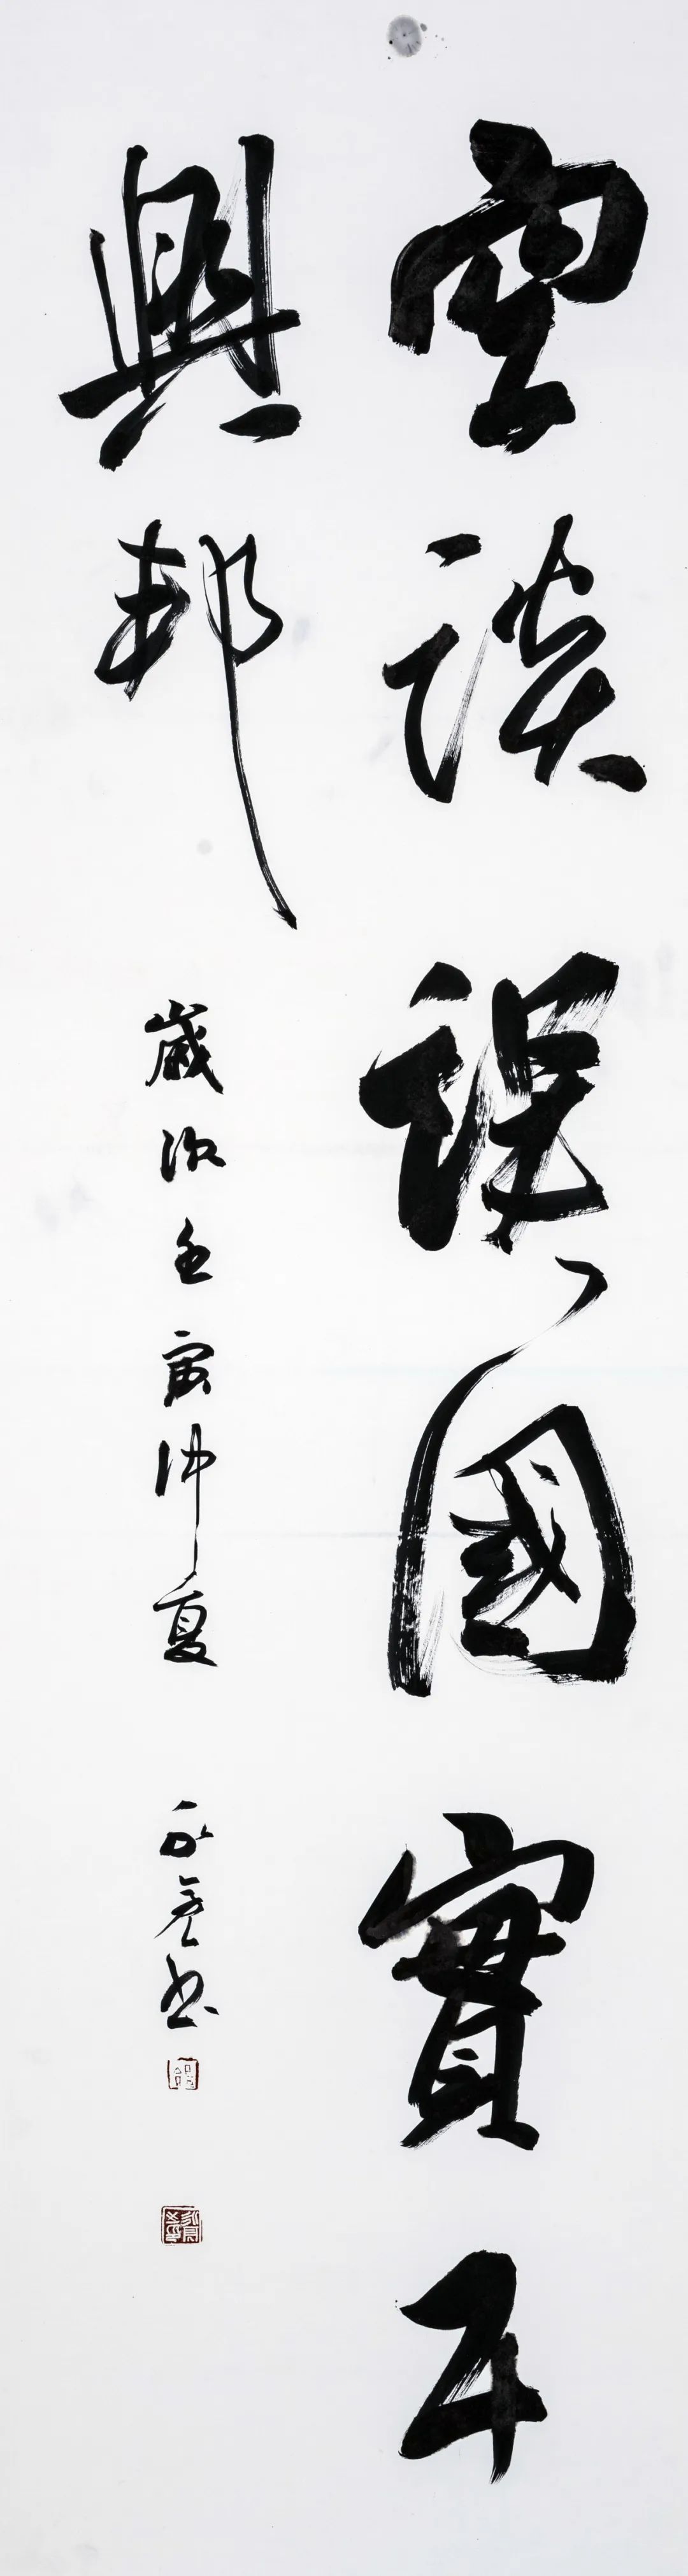 空談誤國實干
興邦
歲次壬寅仲夏 永 書